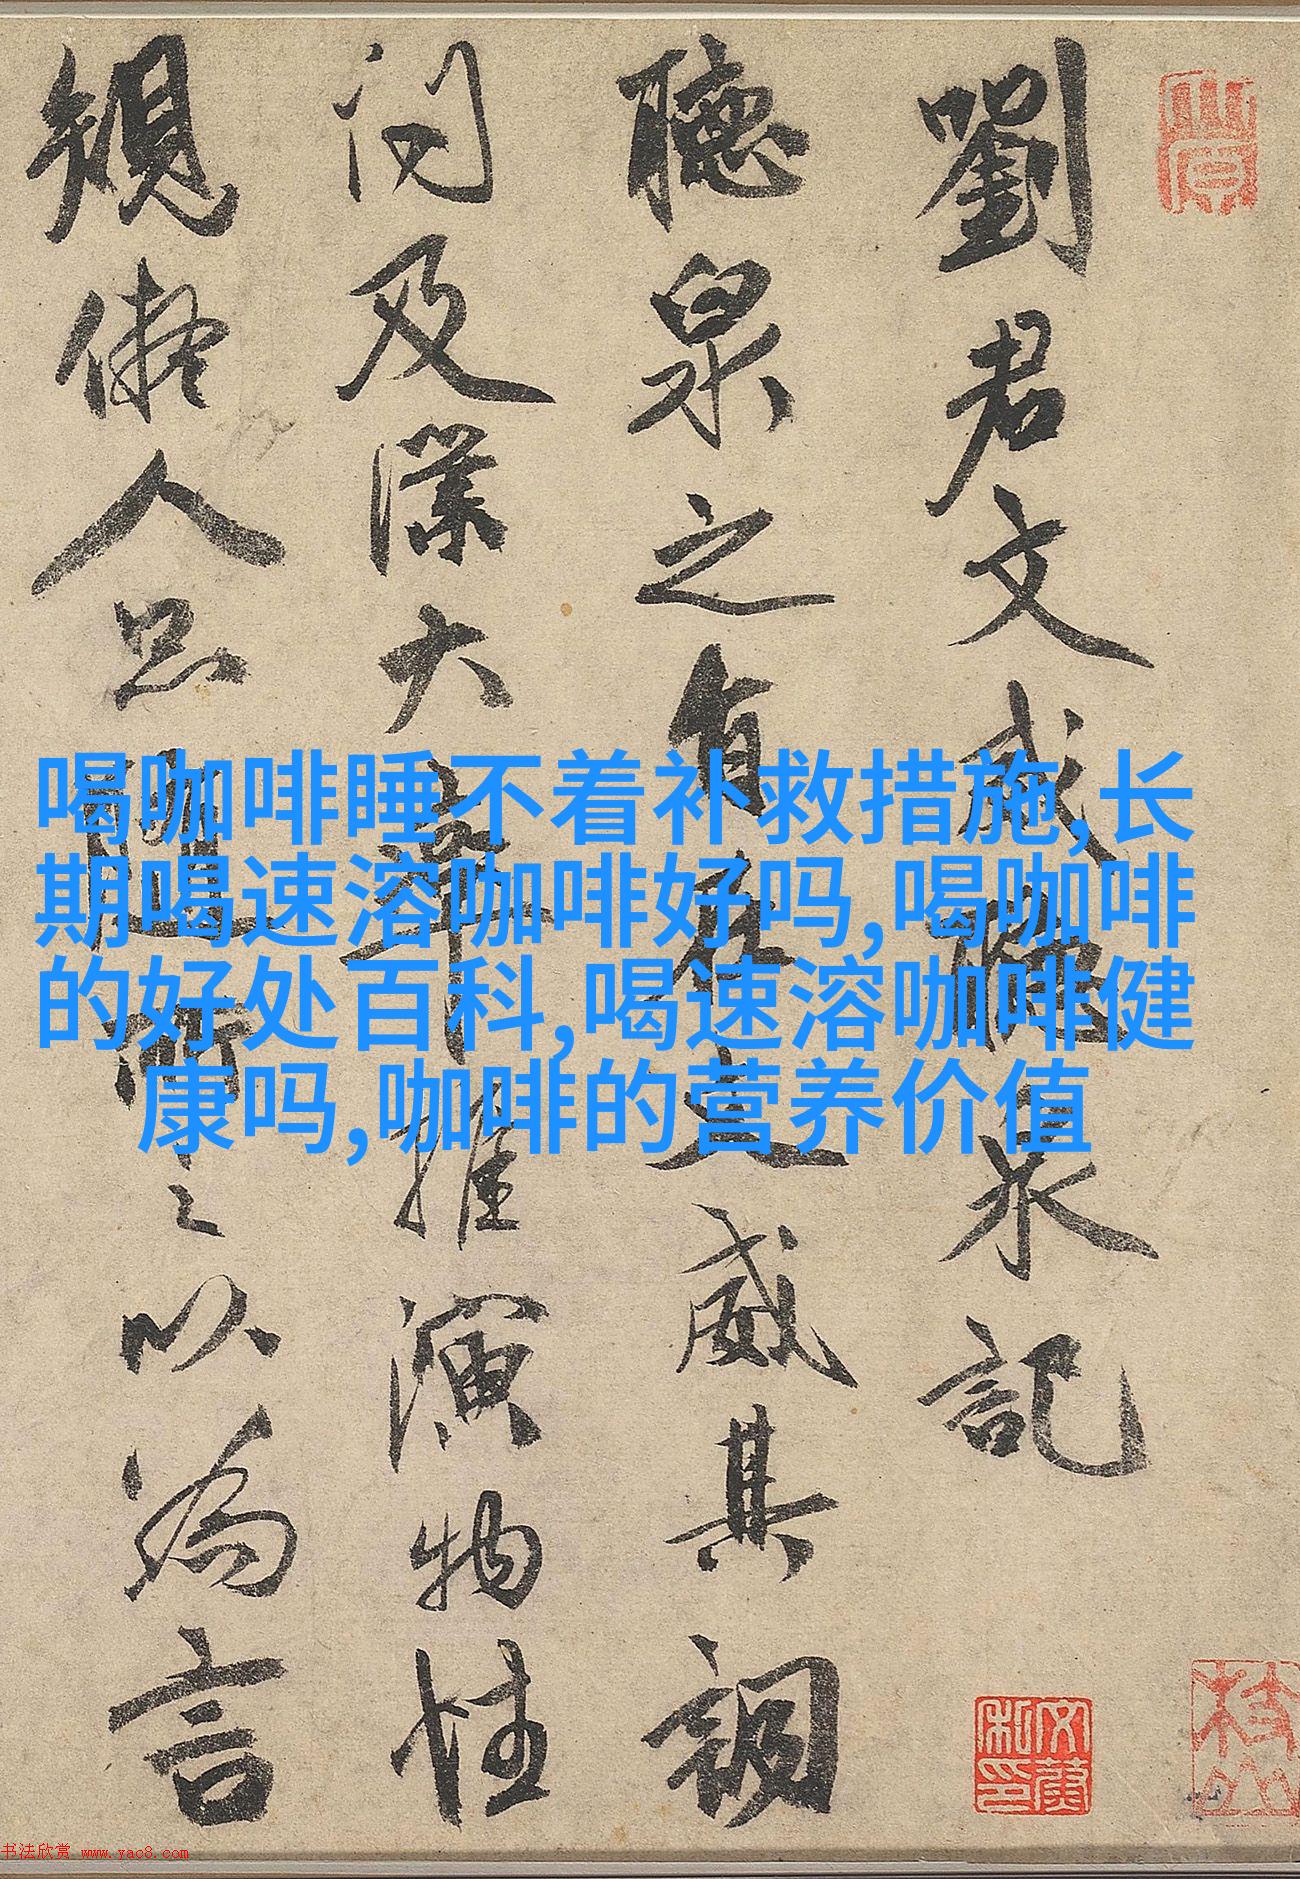 劉君文威聽泉記
聽泉之有在文威其詞
閎及深大率推演物性
規儗人品
之以為言
喝咖啡睡不着补救措施,长
期喝速溶咖啡好吗,喝咖啡
的好处百科,喝速溶咖啡健
康吗,咖啡的营养价值
书法欣赏 www.yac8.com